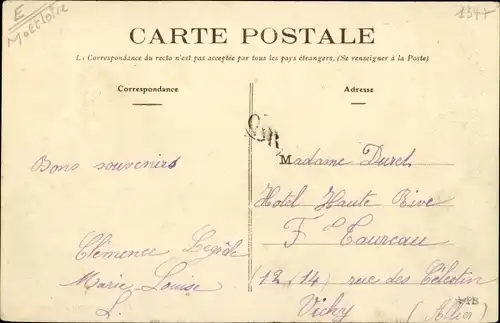 E
1347
CARTE POSTALE
La Correspondance du recto n'est pas acceptée par tous les pays étrangers. (Se renseigner à la Poste)
Correspondance
Adresse
OR
Madame Durel
Bons souvenirs
Hotel Haute Rive
F Taureau
Clémence
Marie Louise
L.
(12, 14) rue des Célestin
Vichy (Allier)